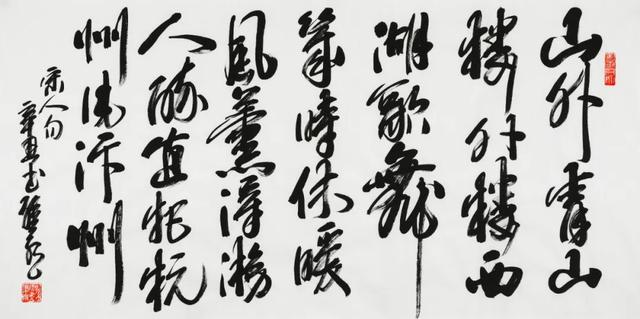 山外青山
樓外樓西
湖歌舞
幾時休暖
風薰得游
人醉直把杭
州作汴州
宋人句
辛丑书